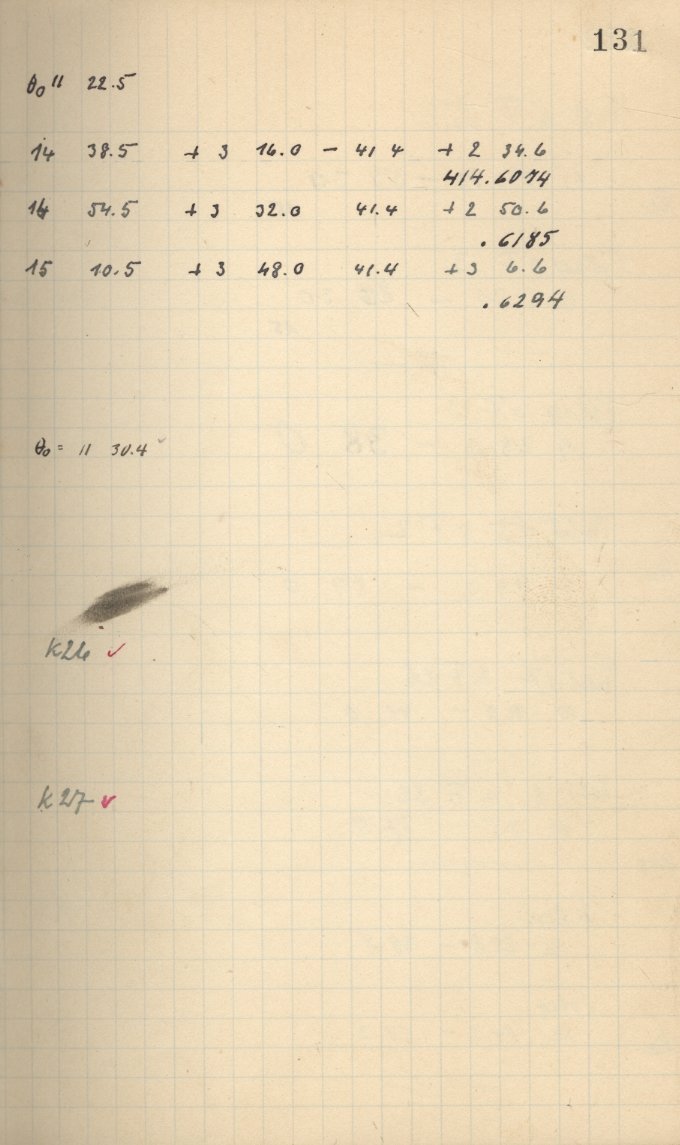 131
θ₀ 11 22.5
14 38.5 + 3 16.0 - 41.4 + 2 34.6
414.6074
14 54.5 + 3 32.0 41.4 + 2 50.6
.6185
15 10.5 + 3 48.0 41.4 + 3 6.6
.6294
θ₀ = 11 30.4
K26 ✓
K27 ✓